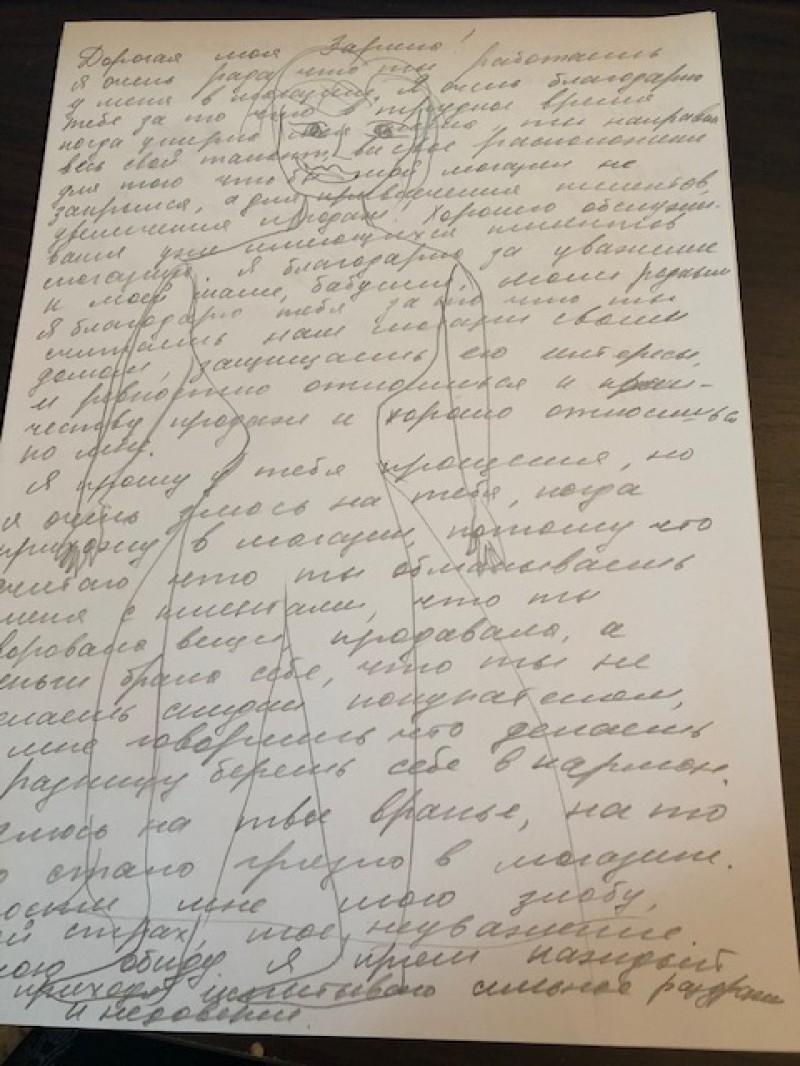 Дорогая моя Зарина!
Я очень рада что ты работаешь
у меня в магазине. Я очень благодарю
тебе за то что в трудное время
когда умерла моя мама, ты направила
весь свой талант, все свое расположение
для того что б мой магазин не
закрылся, а для привлечения клиентов,
увеличения продаж! Хорошего обслужи-
вания уже имеющихся клиентов
магазина. Я благодарю за уважение
к моей маме, бабушке, моим родным
Я благодарю тебя за то что ты
считаешь наш магазин своим
домом, защищаешь его интересы,
и ревностно относишься к
честву продаж и хорошо относишься
ко мне.
Я прошу у тебя прощения, но
я очень злюсь на тебя, когда
прихожу в магазин, потому что
читаю что ты обманываешь
меня с клиентами, что ты
воровала вещи, продавала, а
еньги брала себе, что ты не
елаешь скидки покупателям,
мне говоришь что делаешь
разницу берешь себе в карман.
злюсь на твое вранье, на то
о стало грязно в магазине.
ости мне мою злобу,
ой страх, мое неуважение
мою обиду Я прям каждый
приходя испытываю сильное раздражен
и недоверие.